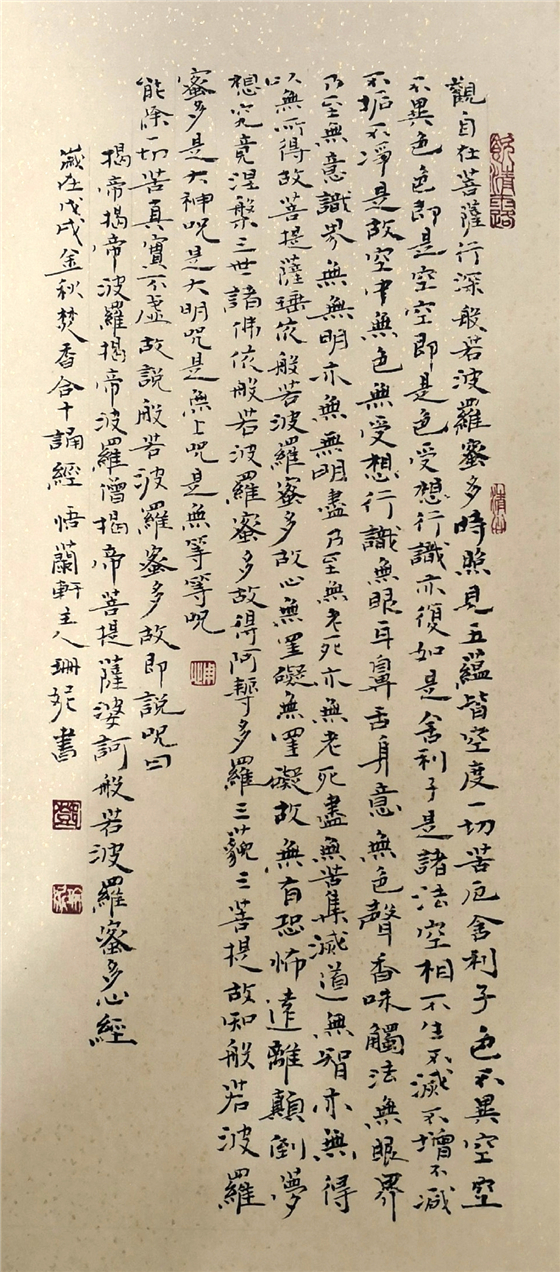 觀自在菩薩行深般若波羅蜜多時照見五蘊皆空度一切苦厄舍利子色不異空空
不異色色即是空空即是色受想行識亦復如是舍利子是諸法空相不生不滅不增不減
不垢不淨是故空中無色無受想行識無眼耳鼻舌身意無色聲香味觸法無眼界
乃至無意識界無無明亦無無明盡乃至無老死亦無老死盡無苦集滅道無智亦無得
以無所得故菩提薩埵依般若波羅蜜多故心無罣礙無罣礙故無有恐怖遠離顛倒夢
想究竟涅槃三世諸佛依般若波羅蜜多故得阿耨多羅三藐三菩提故知般若波羅
蜜多是大神咒是大明咒是無上咒是無等等咒
能除一切苦真實不虛故說般若波羅蜜多故即說咒曰
揭帝揭帝波羅揭帝波羅僧揭帝菩提薩婆訶般若波羅蜜多心經
歲在戊戌金秋焚香合十誦經 悟蘭軒主人珊妮書